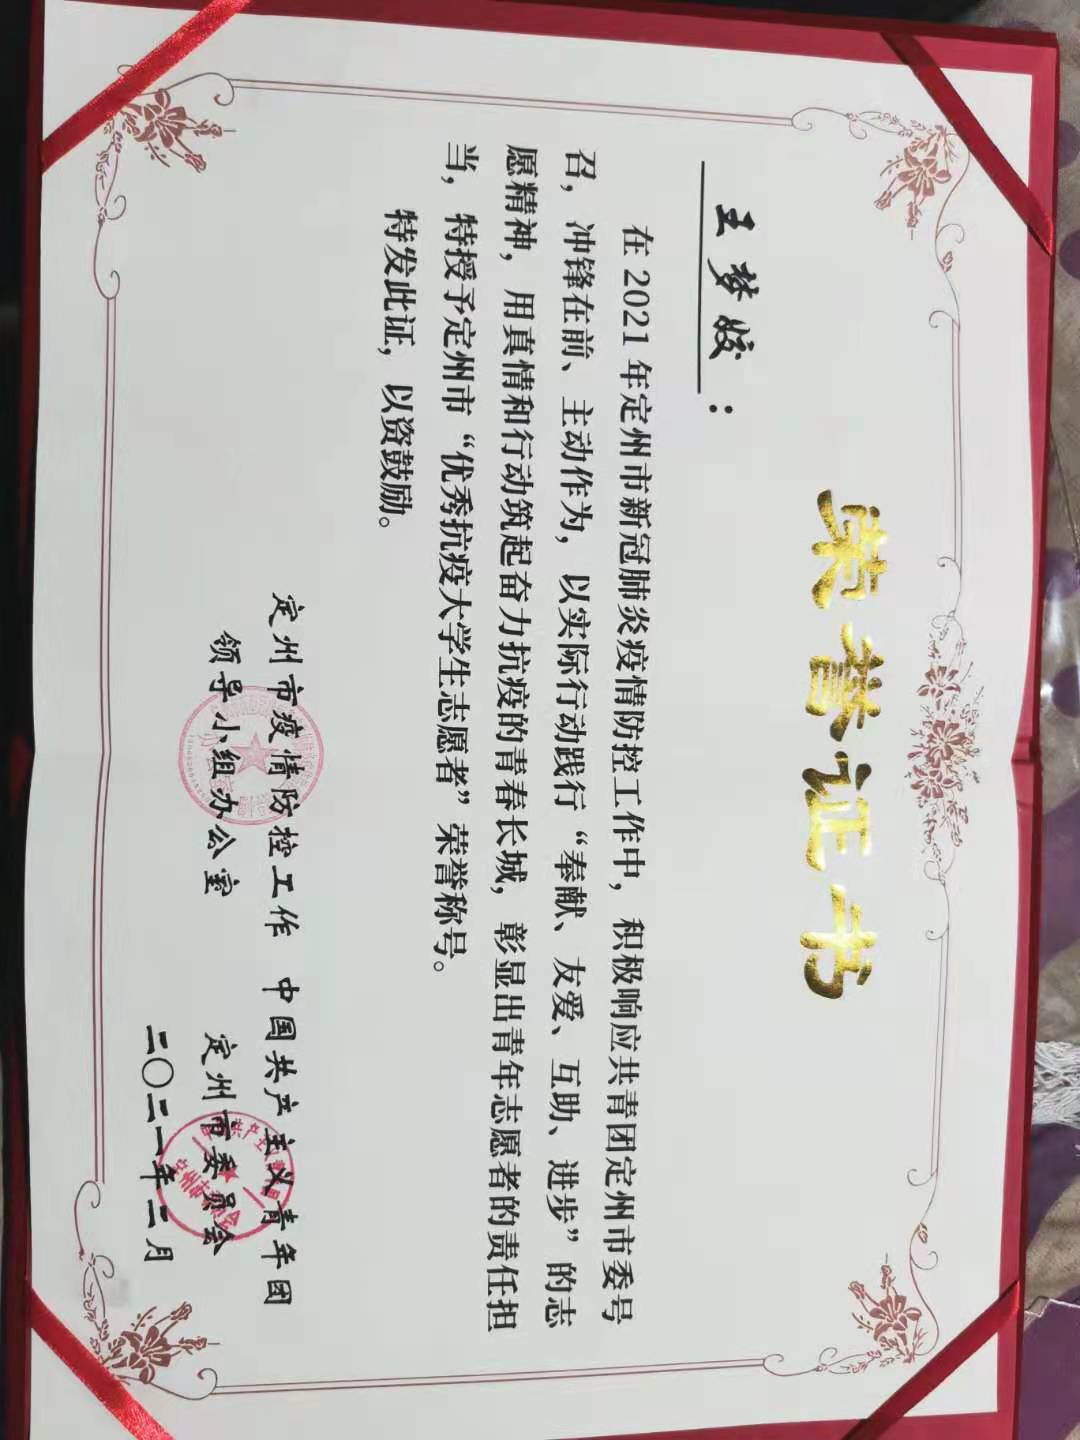 荣誉证书
王梦姣：
在2021年定州市新冠肺炎疫情防控工作中，积极响应共青团定州市委号
召，冲锋在前、主动作为，以实际行动践行“奉献、友爱、互助、进步”的志
愿精神，用真情和行动筑起奋力抗疫的青春长城，彰显出青年志愿者的责任担
当，特授予定州市“优秀抗疫大学生志愿者”荣誉称号。
特发此证，以资鼓励。
定州市疫情防控工作
领导小组办公室
中国共产主义青年团
定州市委员会
二〇二一年二月